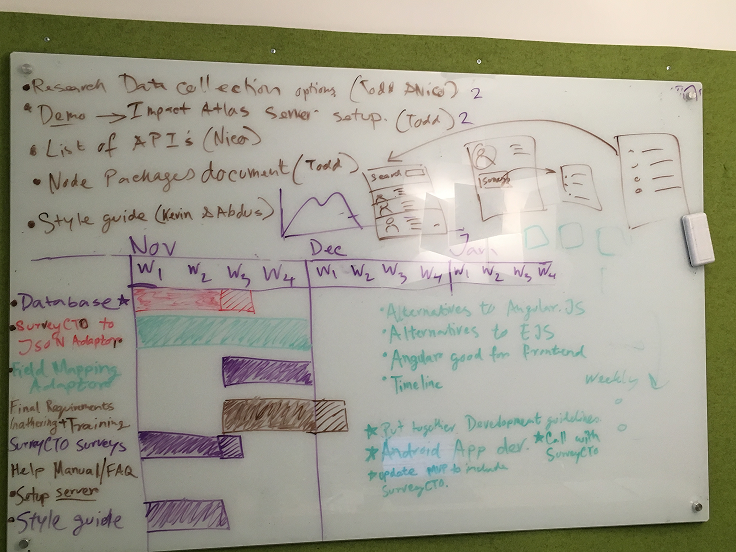 • Research Data collection options (Todd & Nico) 2
• Demo → Impact Atlas server setup. (Todd) 2
• List of API's (Nico)
• Node Packages document (Todd)
• Style guide (Kevin & Abdus)
Search
Nov Dec Jan
W1 W2 W3 W4 W1 W2 W3 W4 W1 W2 W3 W4
• Database ★
• SurveyCTO to
JSON Adaptor
• Field Mapping
Adaptors
Final Requirements
Gathering + Training
SurveyCTO Surveys
Help Manual/FAQ
• Setup server
• Style guide
• Alternatives to Angular.JS
• Alternatives to EJS
• Angular good for frontend
• Timeline
Weekly
★ Put together Development guidelines
★ Android App dev.
★ Call with
SurveyCTO
★ update MVP to include
SurveyCTO.